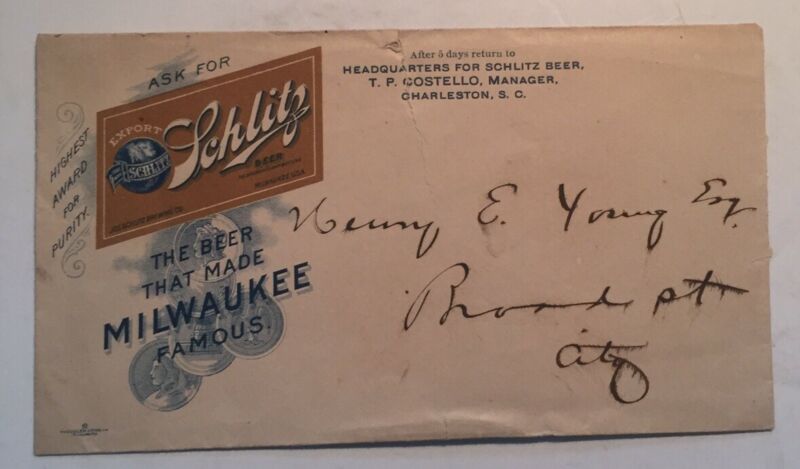 ASK FOR
EXPORT
SCHLITZ
Schlitz
BEER
MILWAUKEE U.S.A.
JOS. SCHLITZ BREWING CO.
HIGHEST
AWARD
FOR
PURITY.
THE BEER
THAT MADE
MILWAUKEE
FAMOUS.
After 5 days return to
HEADQUARTERS FOR SCHLITZ BEER,
T. P. COSTELLO, MANAGER,
CHARLESTON, S. C.
Henry E. Young Esq.
Broad st
City